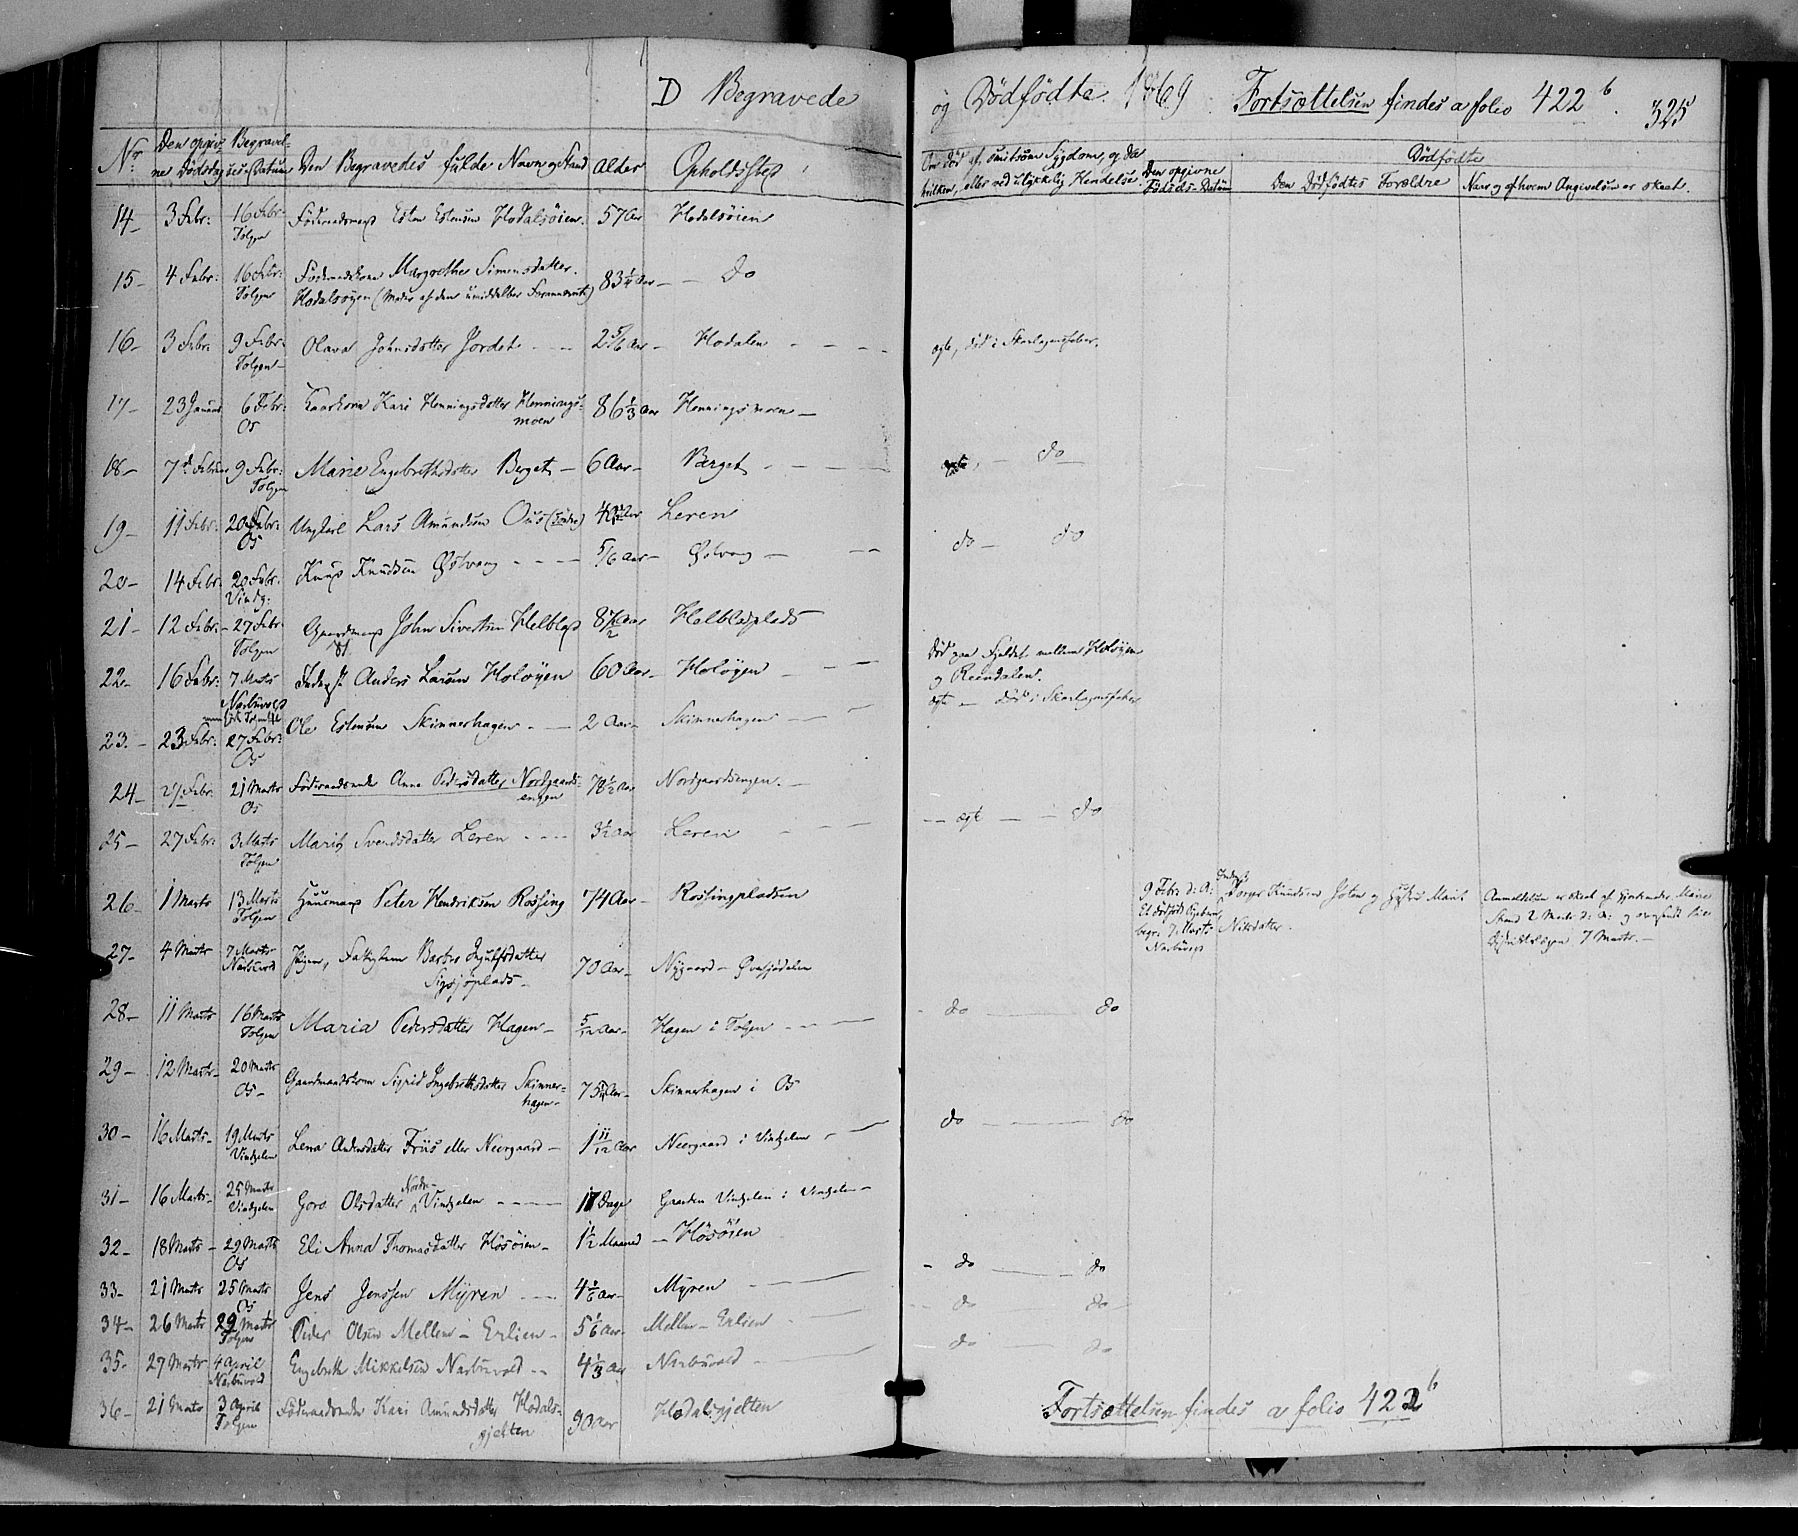 D Begravede og Dödfödte. 1869 Fortsættelsen findes a folio 422 b. 325
Nr. Den opgivne Dödsdag Begravelses-Datum Den Begravedes fulde Navn og Stand Alder Opholdssted
Om död af smitsom Sygdom, og da hvilken, eller ved ulykkelig Hendelse. Den opgivne Födsels-Datum Dödfödte Den Dödfödtes Forældre Naar og af hvem Angivelsen er skeet.
14- 3 Febr: 16 Febr: Tolgen Föderaadsmand Esten Estensen Hodalsöien. 57 Aar Hodalsöien
15- 4 Febr: 16 Febr: Tolgen Margrethe Simensdatter.
Hodalsöyen (Moder af den umiddelbar Forannævnte) 83 1/4 Aar - - do
16- 3 Febr: 9 Febr: Tolgen- Olava Johnsdatter Jordet - - - 2 5/6 Aar - Hodalen - - - ægte, död i Skarlagensfeber.
17- 23 Januar 6 Febr: Os Kaarkone Kari Henningsdatter Hennings-
moen 86 1/3 Aar Henningsmoen -
18- 7 Februar 9 Febr: Tolgen Marie Engebrethsdatter Berget - 6 Aar - Berget - - - ægte, - do -
19- 11 Febr: 20 Febr: Os Ungkarl Lars Amundsen Ous (Söndre) Aar Leren
20- 14 Febr: 20 Febr: Vindg: Knud Knudsen Östvang - - - 5/6 Aar - Östvang - - - do - do
21- 12 Febr:- 27 Febr: Tolgen Gaardmand John Sivertsen Helblad Aar Helbladplads
22- 16 Febr: 7 Marts Narbuvold Anders Larsen Holöyen 60 Aar - Holöyen - - Död paa Fjeldet mellem Holöyen
og Reendalen.
23.- 23 Febr: 27 Febr: Os Ole Estensen Skinnerhagen - - 2 Aar - Skinnerhagen - - - ægte - död i Skarlagensfeber
24- Febr: 21 Marts Os Föderaadsenke Anne Pedersdatter Nordgaards-
engen 78 1/2 Aar Nordgaardsengen. -
25- 27 Febr: 3 Marts Tolgen Marit Svendsdatter Leren - - - 3 1/2 Aar Leren - - - - - ægte - - do
26- 1 Marts 13 Marts Tolgen Huusmand Peter Hendriksen Rossing 74 Aar - Rossingpladsen
9 Febr: d: A: Et dödföd begr. 7 Marts Narbuvold
Knudsen og Marit Nilsdatter.
Anmeldelsen er skeet af Gjordemoder, Marie 2 Marts d: A: og 7 Marts. -
27- 4 Marts 7 Marts Narbuvold Pigen, Barbro
70 Aar - Nygaard -
28- 11 Marts 16 Marts Tolgen Maria Pedersdatter Hagen - 5/12 Aar - Hagen i Tolgen - - - - do - do
29- 12 Marts- 20 Marts Os- Gaardmandskone Sigrid Ingebrethsdatter Skinner-
hagen- Aar - Skinnerhagen i Os
30- 16 Marts- 19 Marts Vindgelen Lena Andersdatter Friis eller Neergaard - 1 11/12 Aar Neergaard i Vindgelen - - do - do
31- 16 Marts- 25 Marts Vindgelen Goro Olsdatter Nordre- Vindgelen - - - - 17 Dage Gaarden Vindgelen i Vindgelen -
32- 18 Marts - 29 Marts Os Eli Anna Thomasdatter Hösöien - 1 1/2 Maaned - Hösöien
33- 21 Marts 25 Marts Os Jens Jenssen Myren - - - Aar - Myren - - - do - do
34- 26 Marts 29 Marts Tolgen Peder Olsen Mellem-Erlien - 5 1/6 Aar - Mellem-Erlien - - - do - do -
35- 27 Marts 4 April Narbuvold Engebreth Mikkelsen Narbuvold - - 4 1/3 Aar Narbuvold - - do - do
36- 21 Marts 3 April Tolgen Föderaadsenke Kari Amundsdatter Hodals-
gjelten 90 Aar Hodalsgjelten
Fortsættelsen findes a folio 422 b